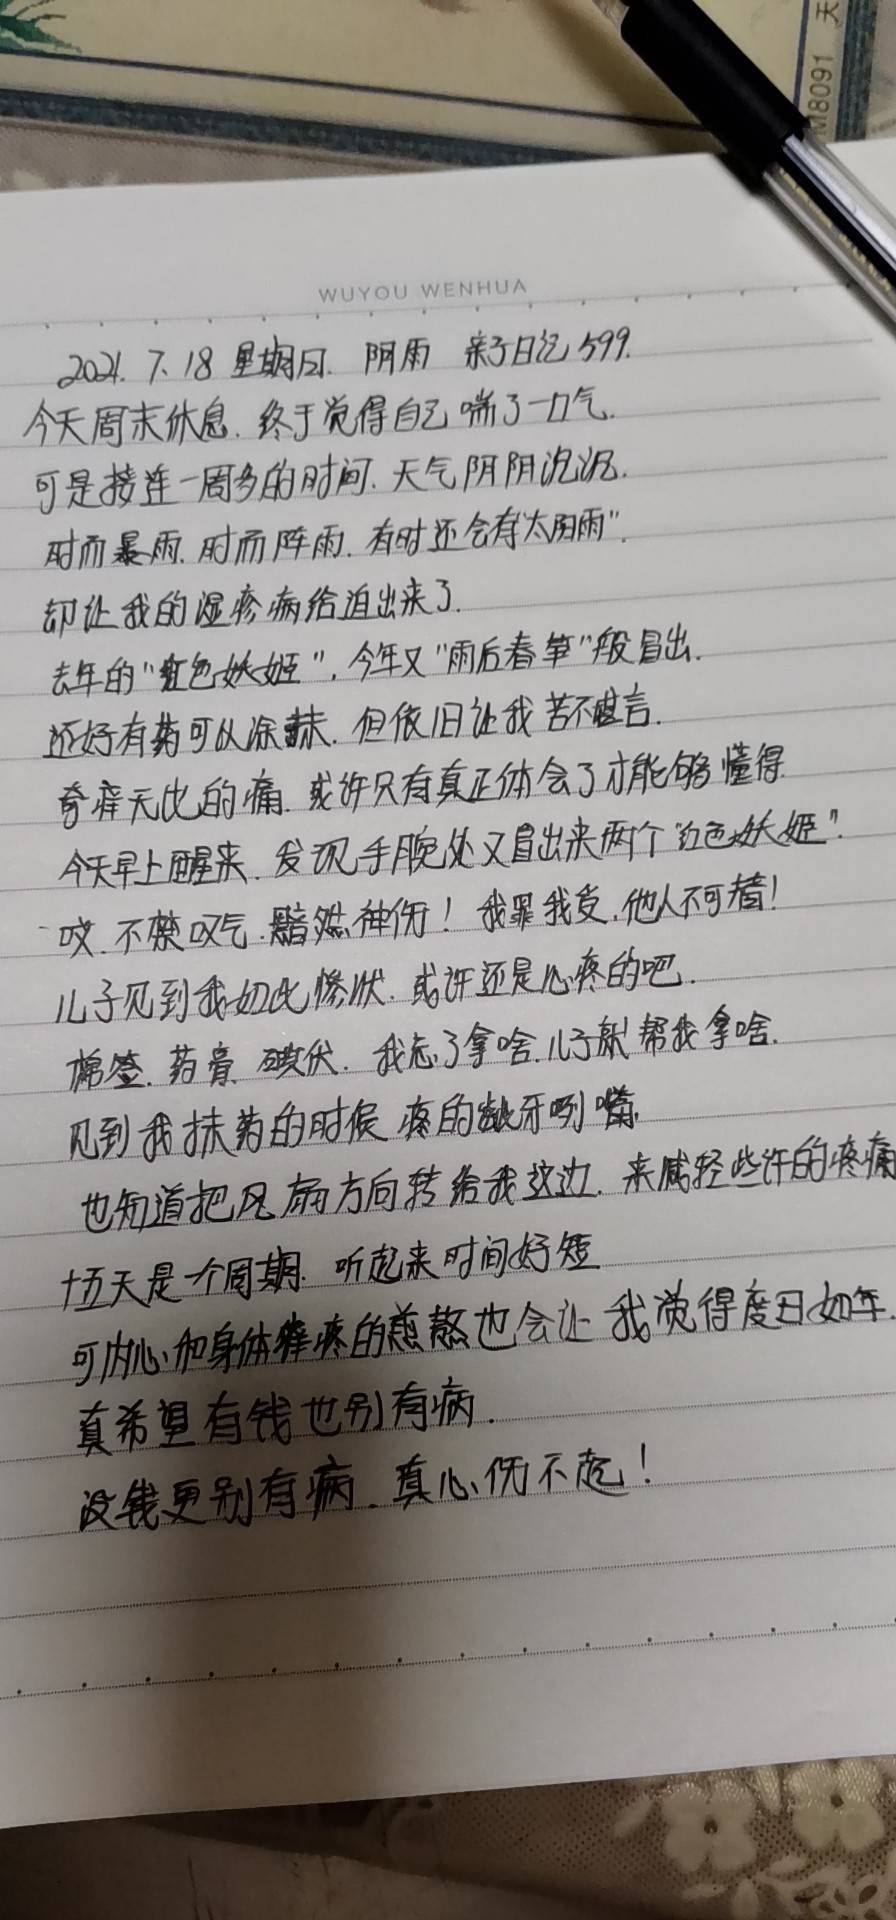 天
M8091
WUYOU WENHUA
2021. 7. 18 星期日. 阴雨 亲子日记 599.
今天周末休息. 终于觉得自己喘了一口气.
可是接连一周多的时间. 天气阴阴沉沉.
时而暴雨. 时而阵雨. 有时还会有"太阳雨".
却让我的湿疹病给迫出来了.
去年的"红色妖姬". 今年又"雨后春笋"般冒出.
还好有药可以涂抹. 但依旧让我苦不堪言.
奇痒无比的痛. 或许只有真正体会了才能够懂得.
今天早上醒来. 发现手腕处又冒出来两个"红色妖姬".
哎. 不禁叹气. 黯然神伤! 我罪我受. 他人不可替!
儿子见到我如此惨状. 或许还是心疼的吧.
棉签. 药膏. 碘伏. 我忘了拿啥. 儿子就帮我拿啥.
见到我抹药的时候 疼的龇牙咧嘴.
也知道把风扇方向转给我这边. 来减轻些许的疼痛
十五天是一个周期. 听起来时间好短
可内心和身体痒疼的煎熬也会让我觉得度日如年.
真希望有钱也别有病.
没钱更别有病. 真心伤不起!